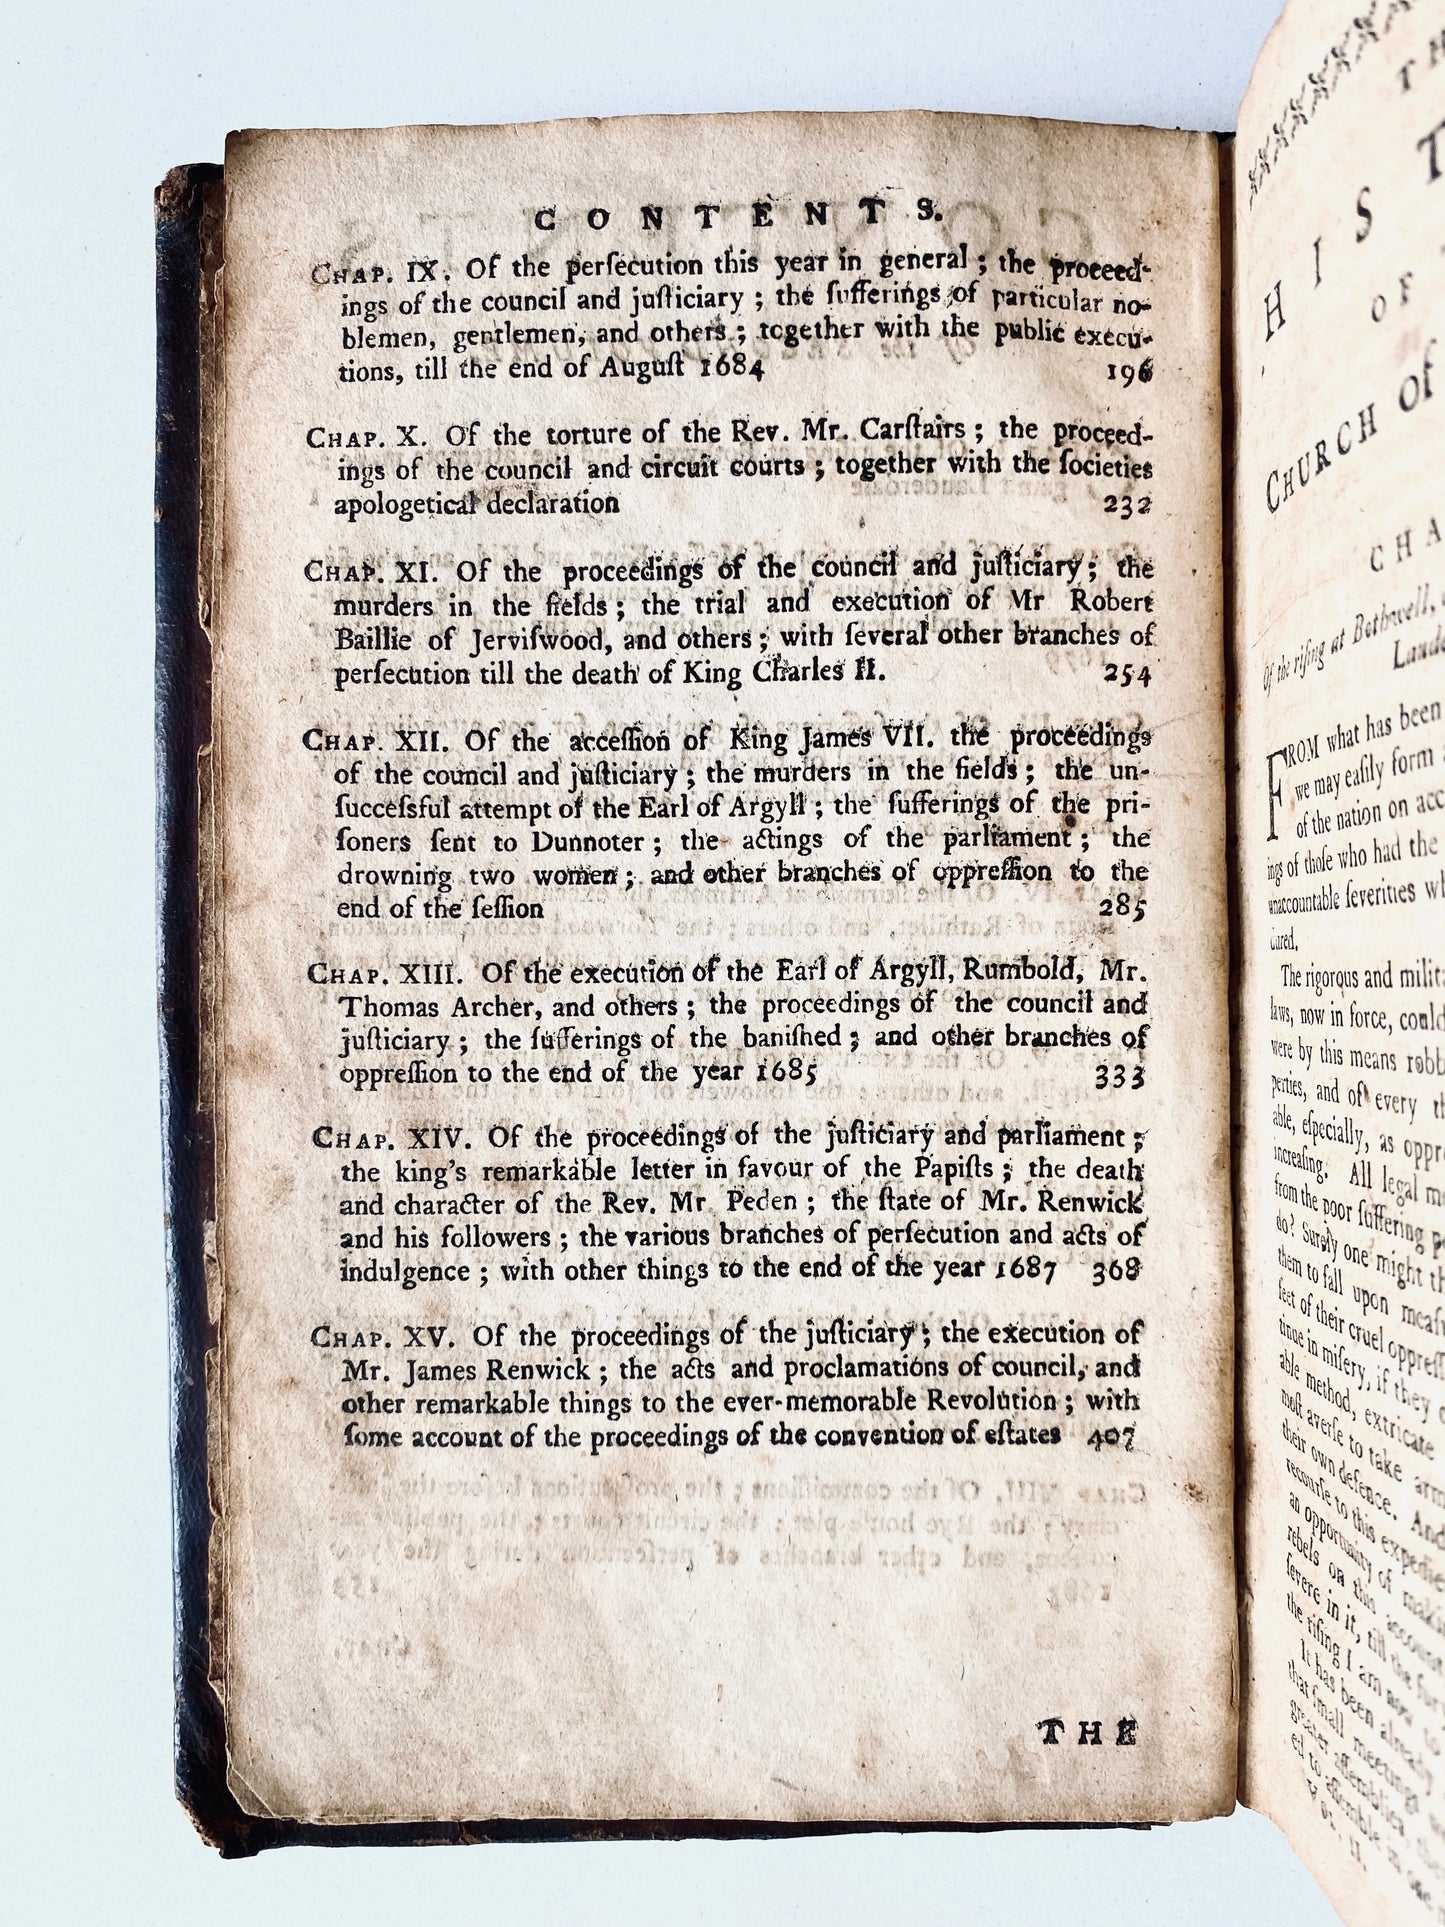 C O N T E N T S.
CHAP. IX. Of the perſecution this year in general ; the proceed-
ings of the council and juſticiary ; the ſufferings of particular no-
blemen, gentlemen, and others ; together with the public execu-
tions, till the end of Auguſt 1684 196
CHAP. X. Of the torture of the Rev. Mr. Carſtairs ; the proceed-
ings of the council and circuit courts ; together with the ſocieties
apologetical declaration 232
CHAP. XI. Of the proceedings of the council and juſticiary ; the
murders in the fields ; the trial and execution of Mr Robert
Baillie of Jerviſwood, and others ; with ſeveral other branches of
perſecution till the death of King Charles II. 254
CHAP. XII. Of the acceſſion of King James VII. the proceedings
of the council and juſticiary ; the murders in the fields ; the un-
ſucceſsful attempt of the Earl of Argyll ; the ſufferings of the pri-
ſoners ſent to Dunnoter ; the actings of the parliament ; the
drowning two women ; and other branches of oppreſſion to the
end of the ſeſſion 285
CHAP. XIII. Of the execution of the Earl of Argyll, Rumbold, Mr.
Thomas Archer, and others ; the proceedings of the council and
juſticiary ; the ſufferings of the baniſhed ; and other branches of
oppreſſion to the end of the year 1685 333
CHAP. XIV. Of the proceedings of the juſticiary and parliament ;
the king's remarkable letter in favour of the Papiſts ; the death
and character of the Rev. Mr Peden ; the ſtate of Mr. Renwick
and his followers ; the various branches of perſecution and acts of
indulgence ; with other things to the end of the year 1687 368
CHAP. XV. Of the proceedings of the juſticiary ; the execution of
Mr. James Renwick ; the acts and proclamations of council, and
other remarkable things to the ever-memorable Revolution ; with
ſome account of the proceedings of the convention of eſtates 407
THE
T H
H I S T
OF
CHURCH of
C H A
Of the riſing at Bothwell,
Laude
FROM what has been
we may eaſily form
of the nation on acc
ings of thoſe who had the
unaccountable ſeverities wh
dured.
The rigorous and milit
laws, now in force, could
were by this means robb
perties, and of every th
able, eſpecially, as oppr
increaſing. All legal m
from the poor ſuffering p
do? Surely one might th
them to fall upon meaſu
feet of their cruel oppreſſ
tinue in miſery, if they c
able method, extricate
moſt averſe to take arm
their own defence. And
recourſe to this expedie
an opportunity of makin
rebels on this account
ſevere in it, till the fur
the riſing I am now to
It has been already
that ſmall meetings
greater aſſemblies, the
ed to aſſemble in one
VOL. II.